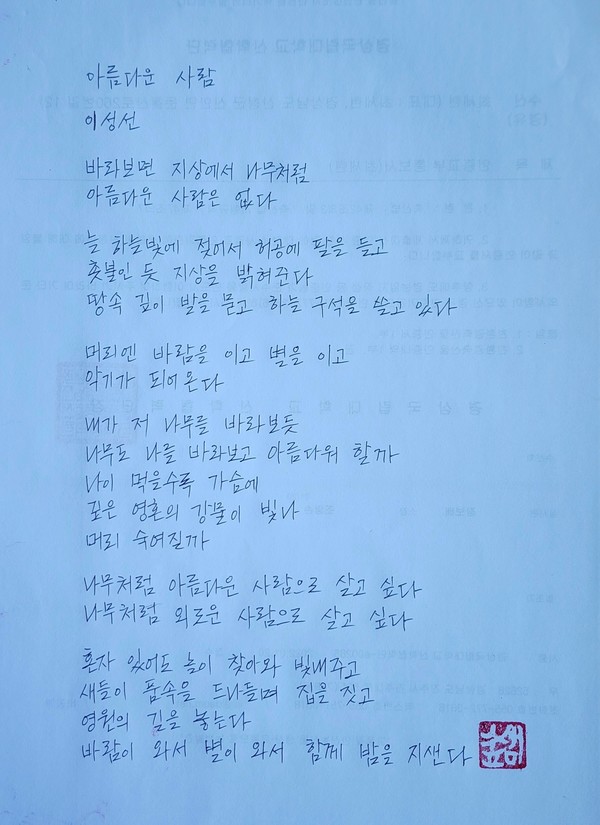 아름다운 사람
이성선
바라보면 지상에서 나무처럼
아름다운 사람은 없다
늘 하늘빛에 젖어서 허공에 팔을 들고
촛불인 듯 지상을 밝혀준다
땅속 깊이 발을 묻고 하늘 구석을 쓸고 있다
머리엔 바람을 이고 별을 이고
악기가 되어온다
내가 저 나무를 바라보듯
나무도 나를 바라보고 아름다워 할까
나이 먹을수록 가슴에
깊은 영혼의 강물이 빛나
머리 숙여질까
나무처럼 아름다운 사람으로 살고 싶다
나무처럼 외로운 사람으로 살고 싶다
혼자 있어도 놀이 찾아와 빛내주고
새들이 품속을 드나들며 집을 짓고
영원의 길을 놓는다
바람이 와서 별이 와서 함께 밤을 지샌다